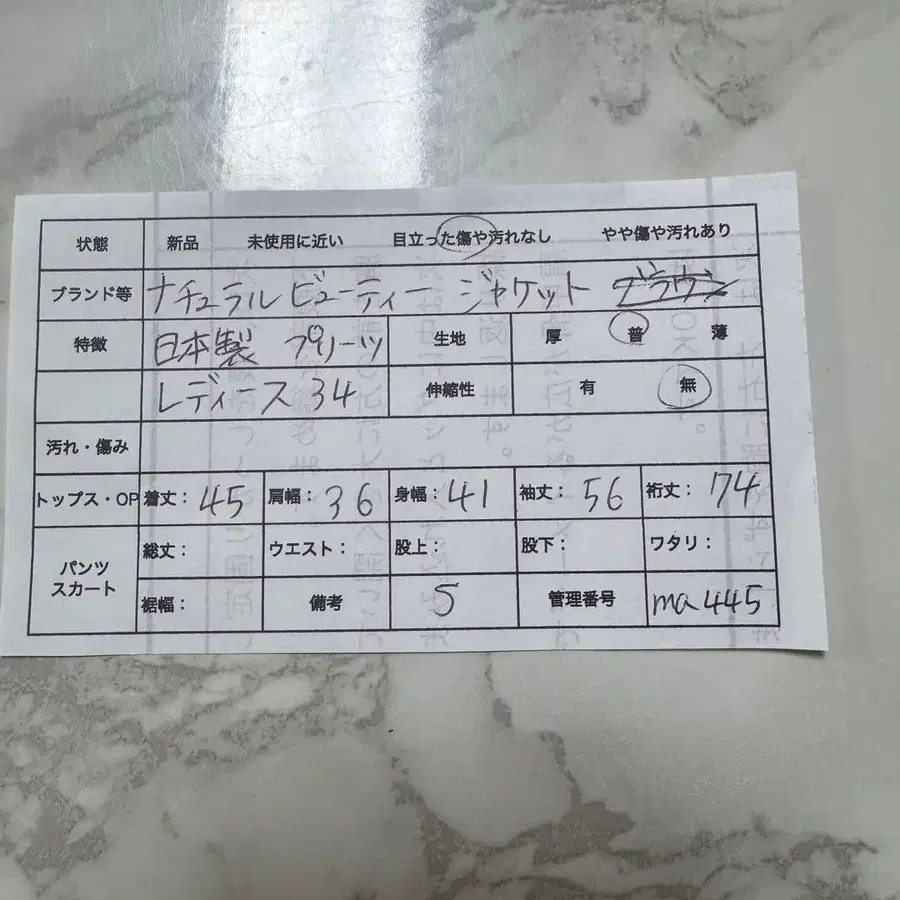 状態 新品 未使用に近い 目立った傷や汚れなし やや傷や汚れあり
ブランド等 ナチュラルビューティー ジャケット ブラウン
特徴 日本製 プリーツ 生地 厚 普 薄
レディース 34 伸縮性 有 無
汚れ・傷み
トップス・OP 着丈: 45 肩幅: 36 身幅: 41 袖丈: 56 裄丈: 74
パンツ スカート 総丈: ウエスト: 股上: 股下: ワタリ:
裾幅: 備考 S 管理番号 ma445